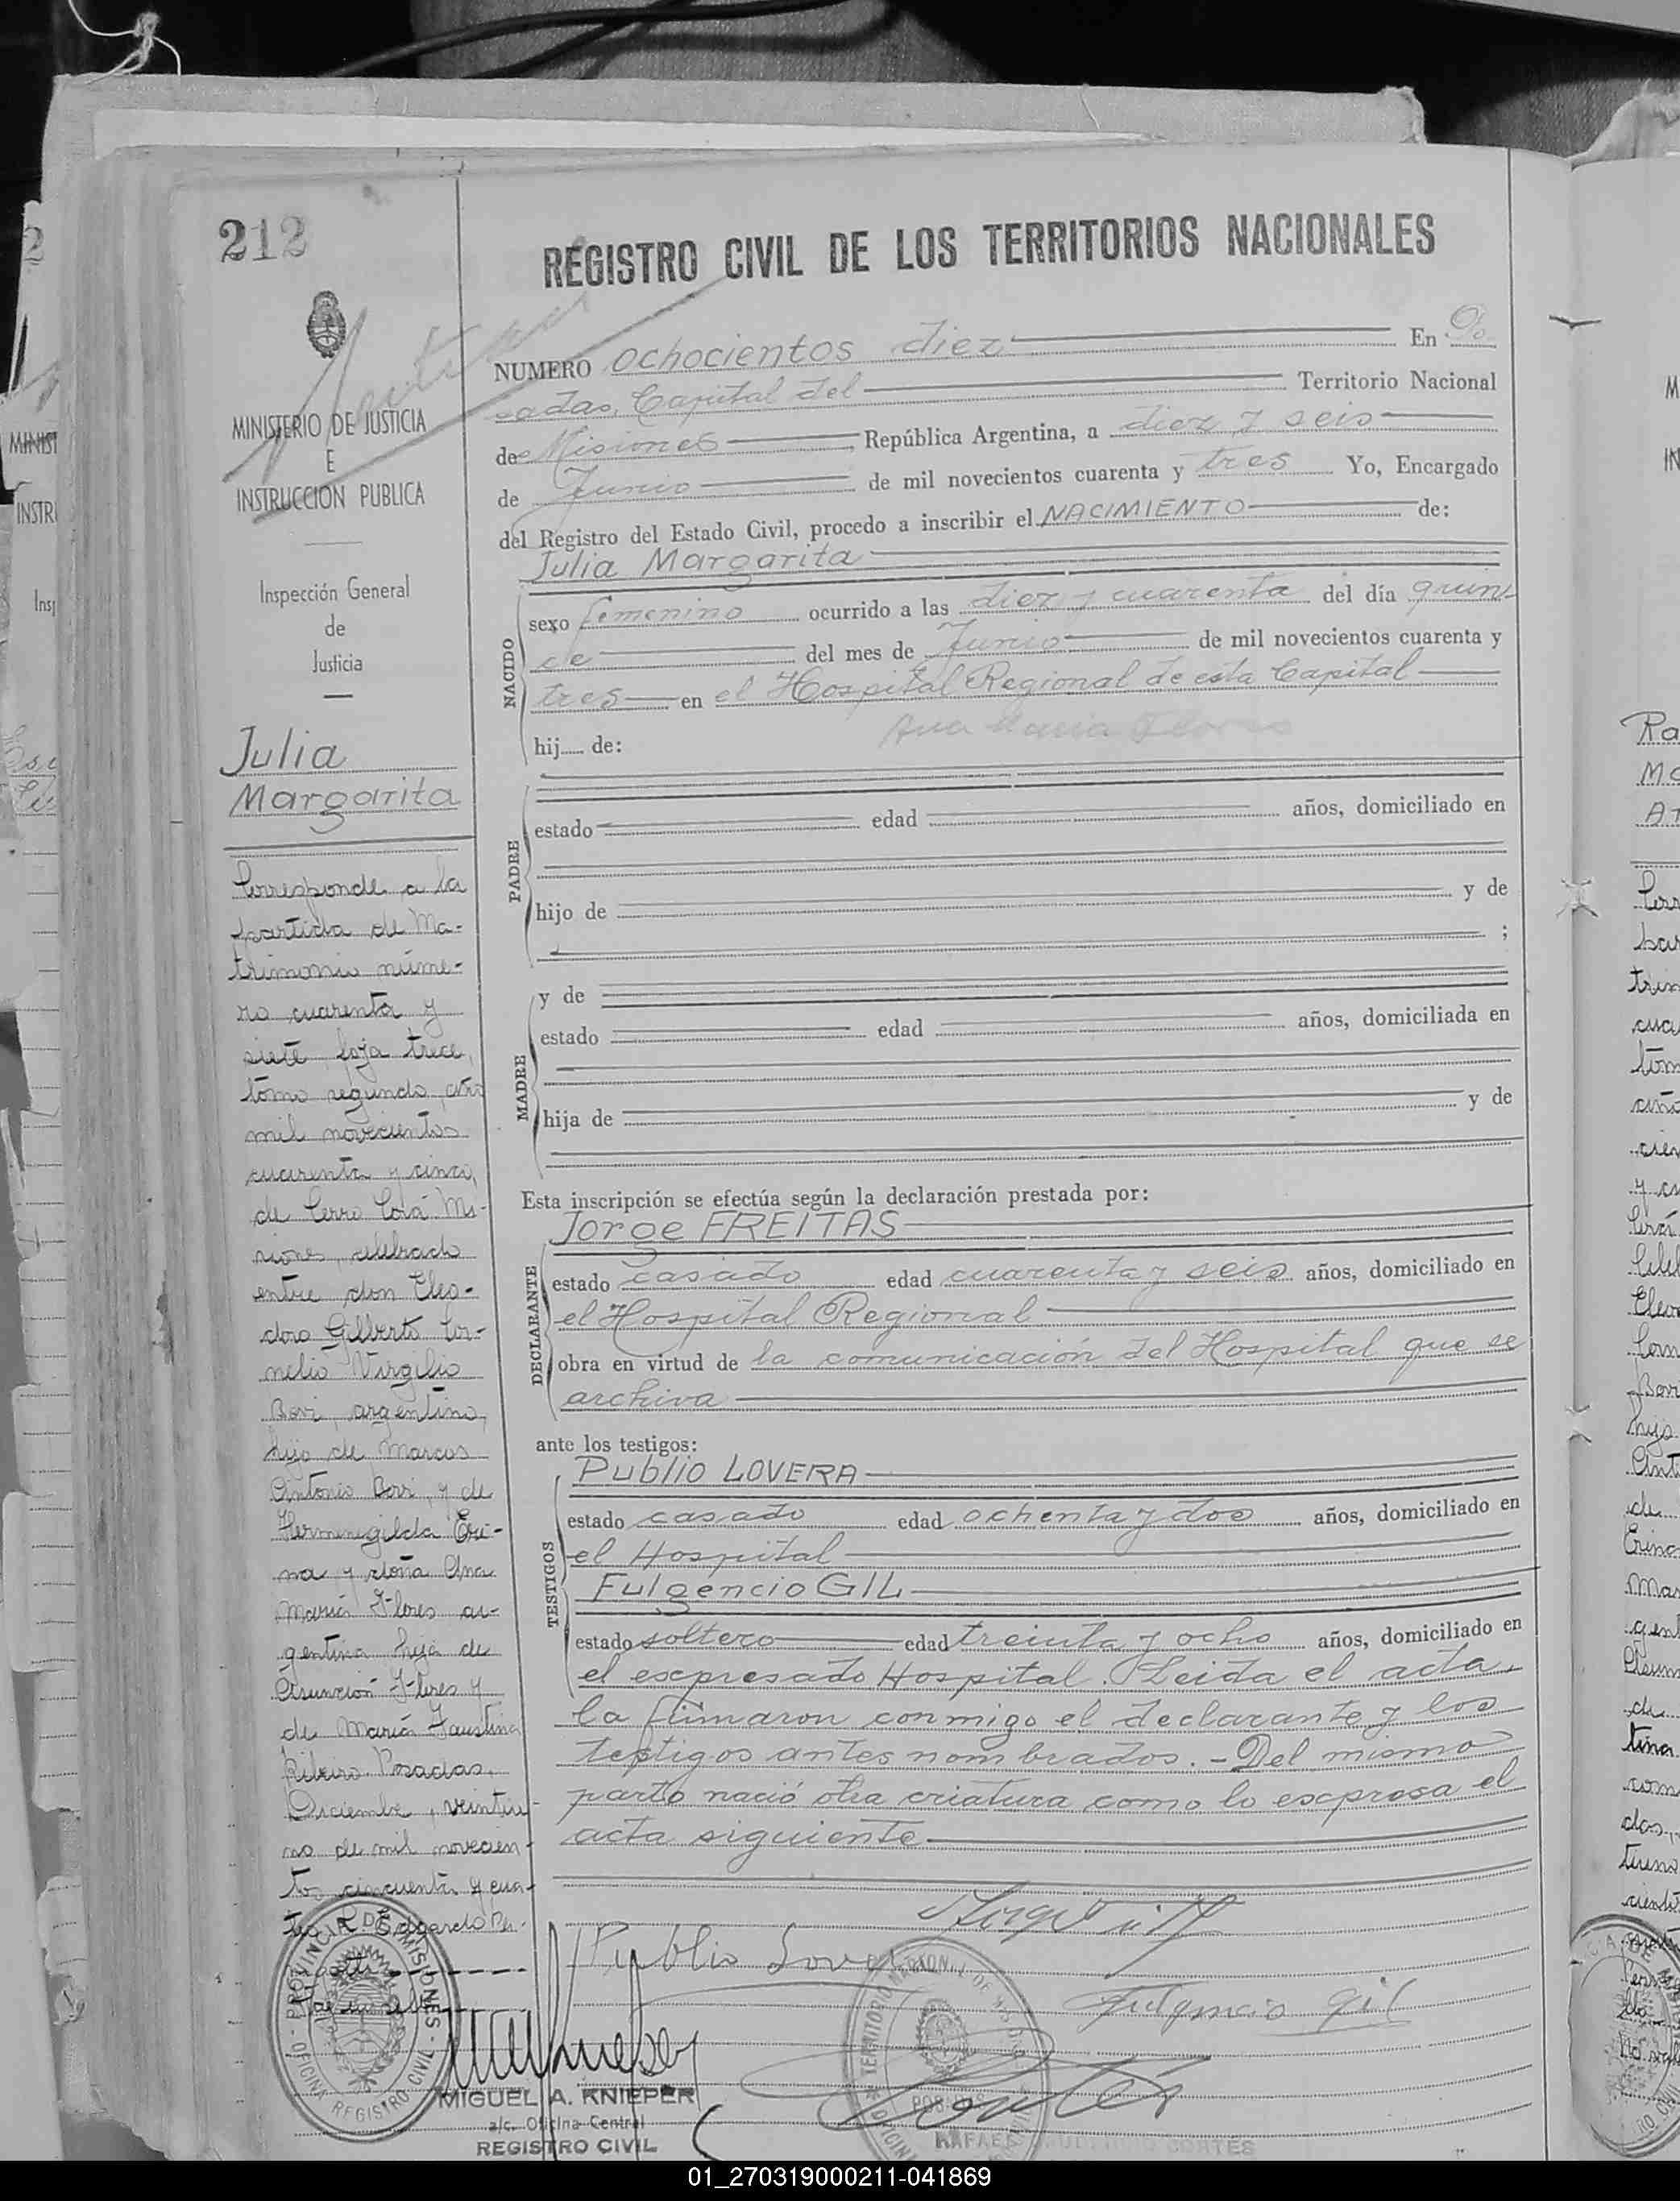 212
REGISTRO CIVIL DE LOS TERRITORIOS NACIONALES
NUMERO ochocientos diez En Po
sadas, Capital del Territorio Nacional
de Misiones República Argentina, a diez y seis
de Junio de mil novecientos cuarenta y tres Yo, Encargado
del Registro del Estado Civil, procedo a inscribir el NACIMIENTO de:
Julia Margarita
NACIDO
sexo femenino ocurrido a las diez y cuarenta del día quin
ce del mes de Junio de mil novecientos cuarenta y
tres en el Hospital Regional de esta Capital
Ana Maria Flores
hij de:
PADRE
estado edad años, domiciliado en
hijo de y de
;
MADRE
y de
estado edad años, domiciliada en
hija de y de
Esta inscripción se efectúa según la declaración prestada por:
Jorge FREITAS
DECLARANTE
estado casado edad cuarenta y seis años, domiciliado en
el Hospital Regional
obra en virtud de la comunicación del Hospital que se
archiva
ante los testigos:
Publio LOVERA
TESTIGOS
estado casado edad ochenta y dos años, domiciliado en
el Hospital
Fulgencio GIL
estado soltero edad treinta y ocho años, domiciliado en
el expresado Hospital. Leida el acta,
la firmaron conmigo el declarante y los
testigos antes nombrados. - Del mismo
parto nació otra criatura como lo expresa el
acta siguiente
Publio Lovera
Fulgencio gil
MINISTERIO DE JUSTICIA
E
INSTRUCCION PUBLICA
Inspección General
de
Justicia
Julia
Margarita
Corresponde a la
partida de Ma-
trimonio núme-
ro cuarenta y
siete, foja trece,
tomo segundo, año
mil novecientos
cuarenta y cinco,
de Cerro Corá Mi-
siones, celebrado
entre don Cleo-
doro Gilberto Cor-
nelio Virgilio
Bovi, argentino,
hijo de Marcos
Antonio Bovi, y de
Hermenegilda Eri-
na y doña Ana
María Flores ar-
gentina hija de
Asunción Flores y
de María Faustina
Ribeiro. Posadas,
Diciembre, veintiu-
no de mil novecien-
tos cincuenta y cua-
tro
PROVINCIA DE MISIONES
OFICINA REGISTRO CIVIL
MIGUEL A. KNIEPER
a/c. Oficina Central
REGISTRO CIVIL
TERRITORIO NACIONAL DE MISIONES
RAFAEL CORTES
01_270319000211-041869